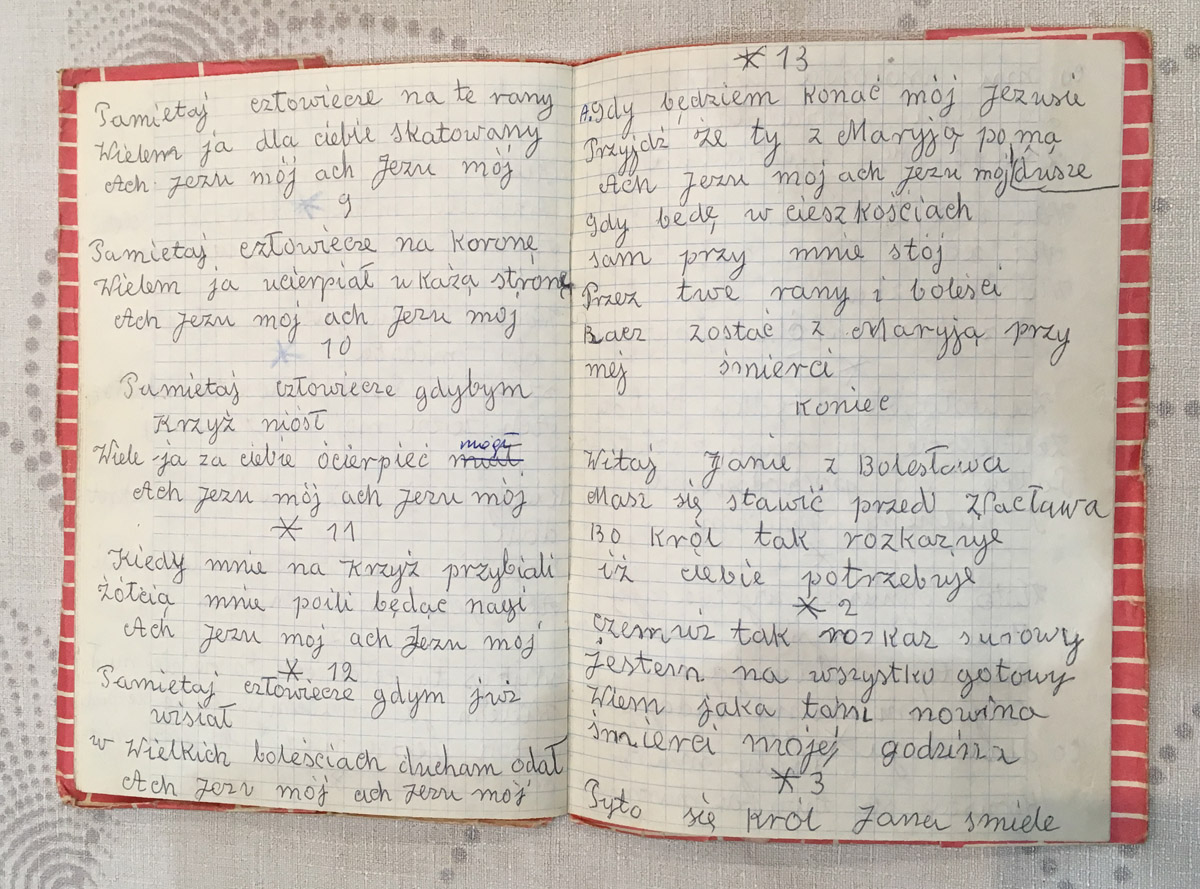 Pamietaj człowiecze na te rany
Wielem ja dla ciebie skatowany
Ach Jezu mój ach Jezu mój
* 9
Pamietaj człowiecze na koronę
Wielem ja ucierpiał w każą stronę
Ach Jezu moj ach Jezu moj
* 10
Pamietaj człowiecze gdybym
Krzyż niósł
Wiele ja za ciebie ócierpieć miał mógł
Ach Jezu mój ach Jezu mój
* 11
Kiedy mnie na Krzyż przybiali
żółcią mnie poili będąc nagi
Ach Jezu moj ach Jezu moj
* 12
Pamietaj człowiecze gdym już
wisiał
w Wielkich boleściach ducham odał
Ach Jezu mój ach Jezu mój
* 13
A. gdy będziem konać mój Jezusie
Przyjdź że ty z Maryją po mą
Ach Jezu moj ach Jezu mój dusze
gdy będę w cieszkościach
sam przy mnie stój
Przez twe rany i boleści
Racz zostać z Maryją przy
mėj śmierci
koniec
Witaj Janie z Bolesława
Masz się stawić przed Wacława
Bo król tak rozkazuje
iż ciebie potrzebuje
* 2
czemuż tak rozkaz surowy
Jestem na wszystko gotowy
Wiem jaka tam nowina
śmierci mojej godzina
* 3
Pyto się król Jana smiele